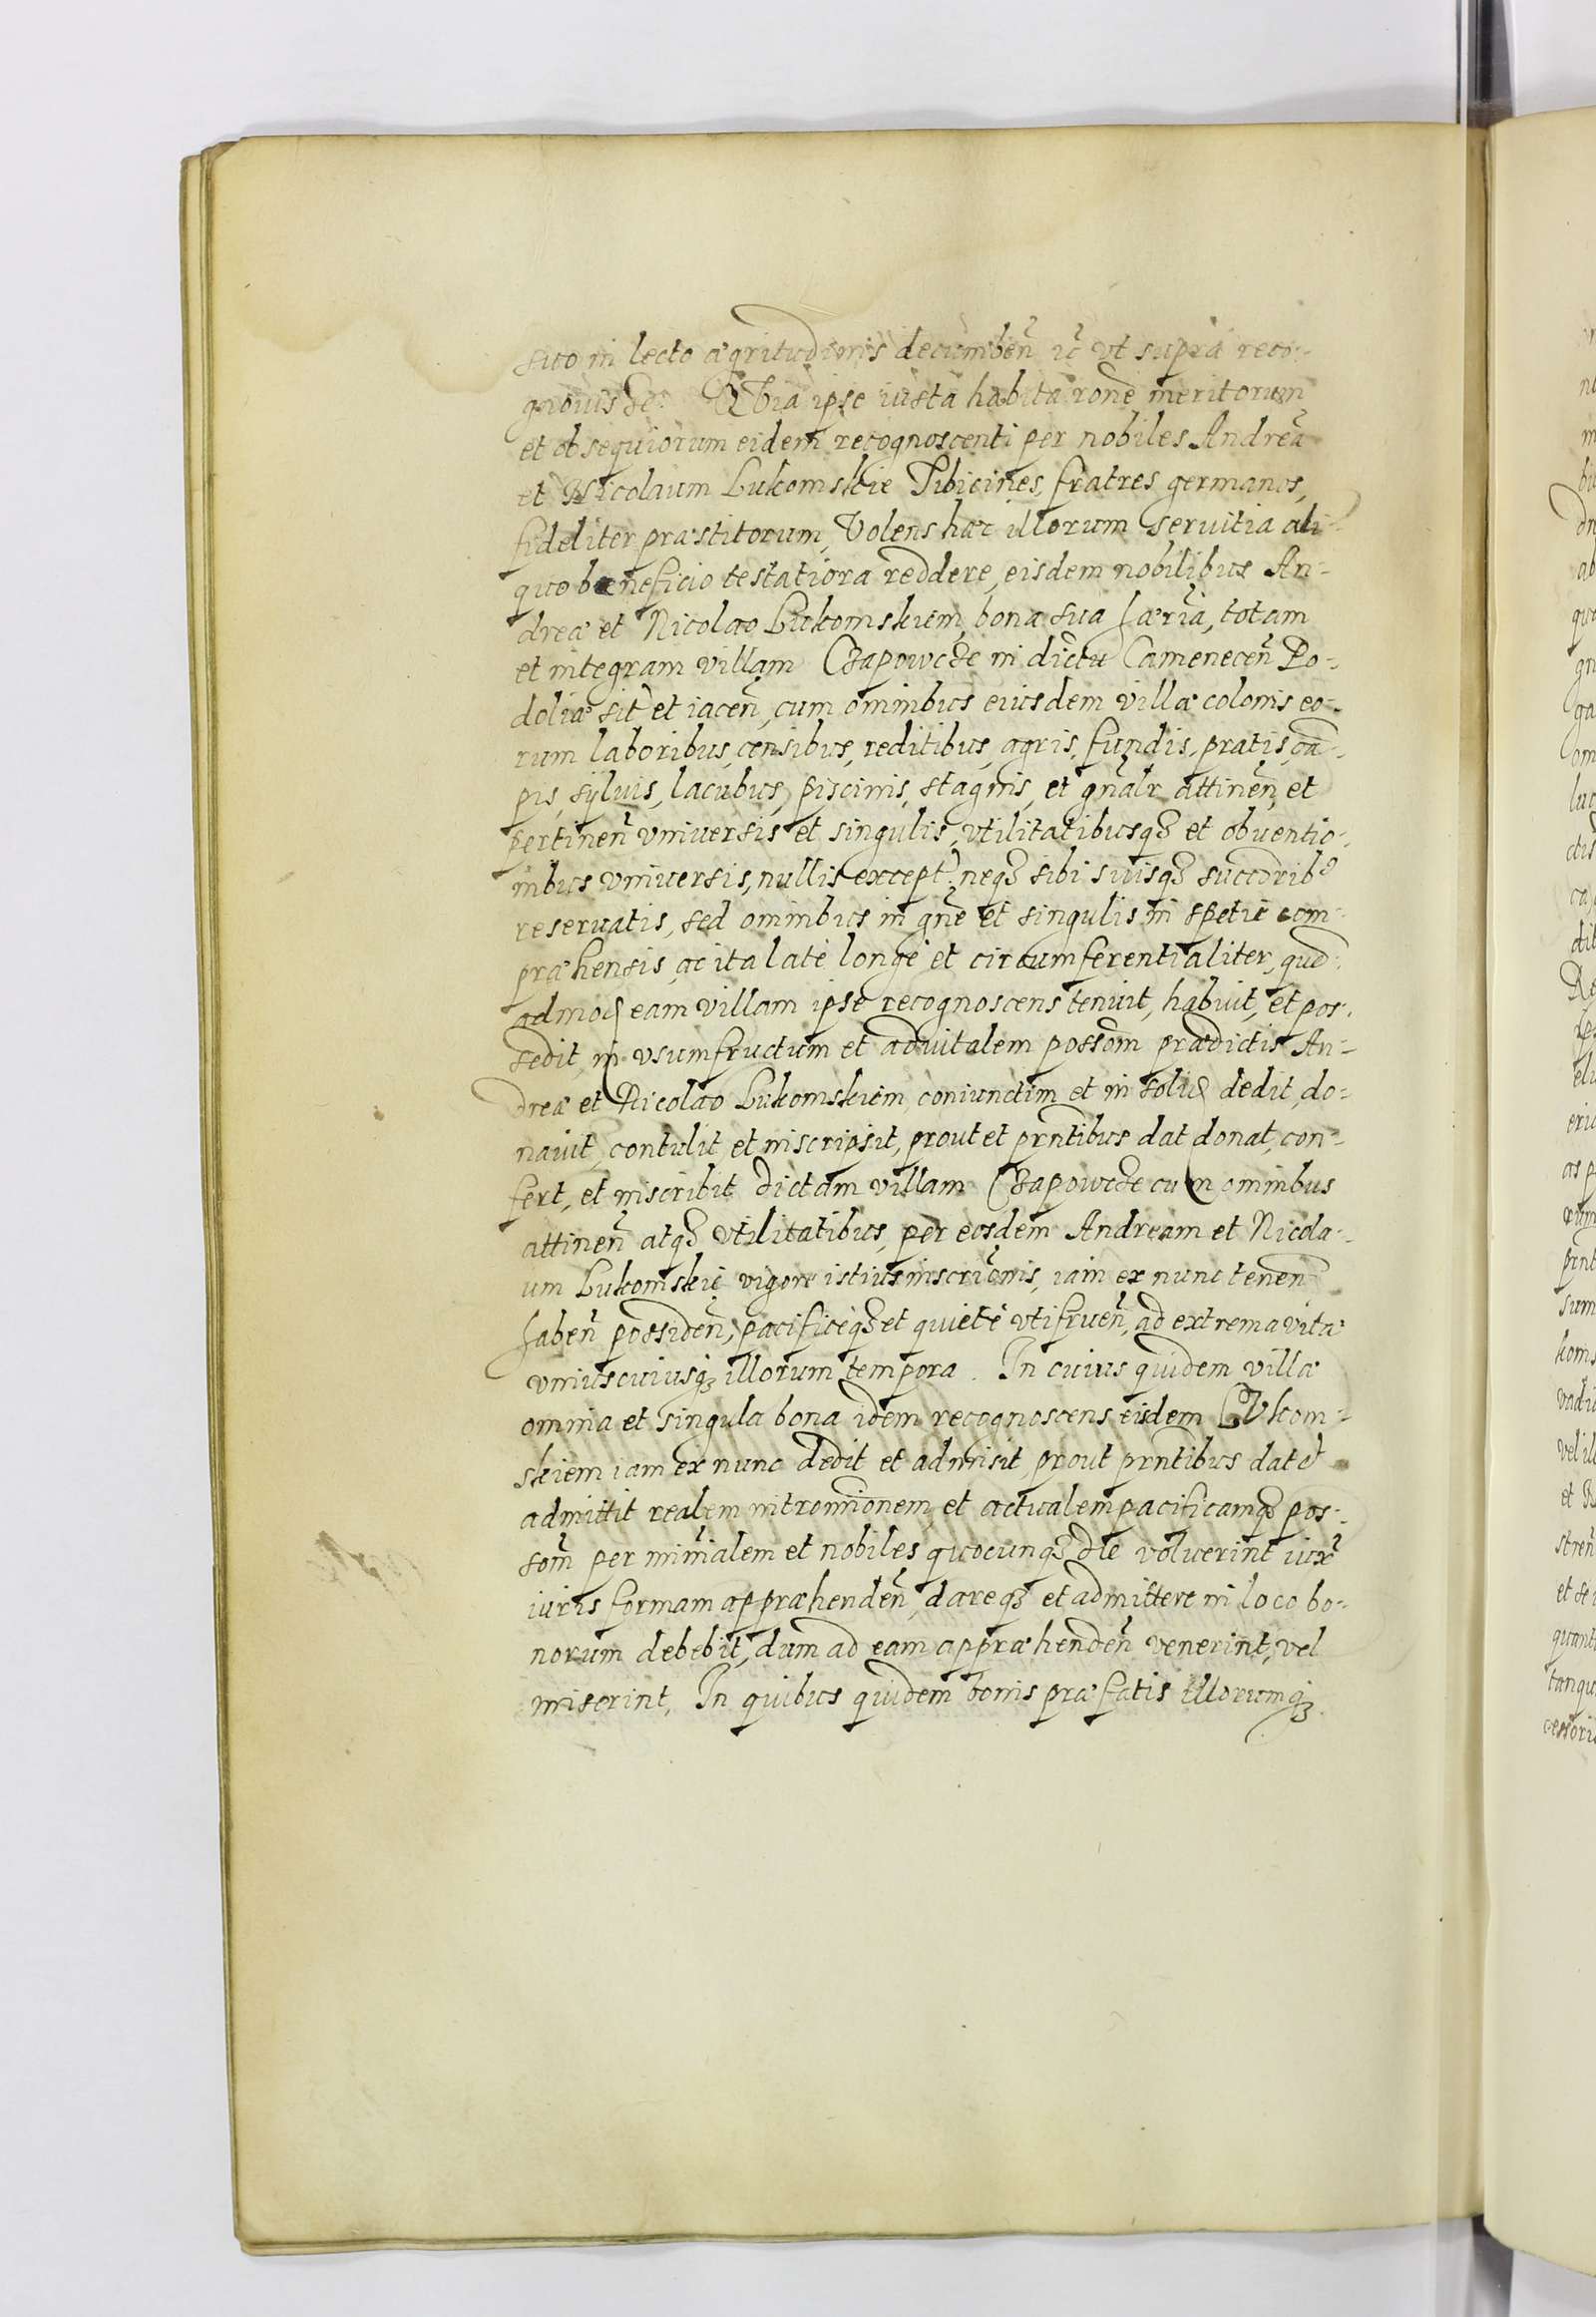 suo in lecto ægritudinis decumbeñ ic̃ vt supra reco-
gnouisse. QVia ipse iusta habita rone meritorum
et obsequiorum eidem recognoscenti per nobiles Andreã
et Nicolaum Lukomskie Tibicines, fratres germanos,
fideliter præstitorum, Volens hæc illorum seruitia ali-
quo bæneficio testatiora reddere, eisdem nobilibus An-
dreæ et Nicolao Lukomskiem, bona sua hæria, totam
et integram villam Czapowcze in dictu Camenecen̄ Po-
doliæ sit̄ et iacen̄, cum omnibus eiusdem villæ colonis eo-
rum laboribus, censibus, reditibus, agris, fundis, pratis, cã-
pis, syluis, lacubus, piscinis, stagnis, et gñalr attinen̄, et
pertinen̄ vniuersis et singulis, vtilitatibusqȝ et obuentio-
nibus vniuersis, nullis except. neqȝ sibi suisqȝ succdribꝰ
reseruatis, sed omnibus in gñe et singulis in spetie com-
præhensis, ac ita late longe et circumferentialiter, quē-
admod eam villam ipse recognoscens tenuit, habuit, et pos-
sedit, in vsumfructum et aduitalem possom prædictis An-
dreæ et Nicolao Lukomskiem, coniunctim et in solid dedit, do-
nauit, contulit et inscripsit, prout et prntibus dat donat, con-
fert, et inscribit dictam villam Czapowcze cum omnibus
attinen̄ atqȝ vtilitatibus, per eosdem Andream et Nicola-
um Lukomskie vigore istius inscriõnis, iam ex nunc tenen̄
haben̄ possiden̄, pacificeqȝ et quiete vtifruen̄, ad extrema vitæ
vniuscuiusqȝ illorum tempora. In cuius quidem villæ
omnia et singula bona idem recognoscens eisdem LVkom-
skiem iam ex nunc dedit et admisit, prout prntibus dat et
admittit realem intromionem, et actualem pacificamqȝ pos-
som per minialem et nobiles quocunqȝ die voluerint iux̃
iuris formam appræhenden̄, dareqȝ et admittere in loco bo-
norum debebit, dum ad eam appræhenden̄ venerint, vel
miserint, In quibus quidem bonis præfatis illorumqȝ